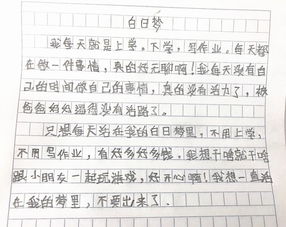 白日梦
我每天就是上学，下学，写作业。每天都
在做一件事情，真的好无聊啊！我每天没有自
己的时间做自己的事情，真的没有活力了，被
爸爸妈妈逼得没有活路了。
只想每天活在我的白日梦里，不用上学，
不用写作业，有好多好多钱，我想干啥就干啥
跟小朋友一起玩游戏，好开心啊！我想一直活
在我的梦里，不要出来了．